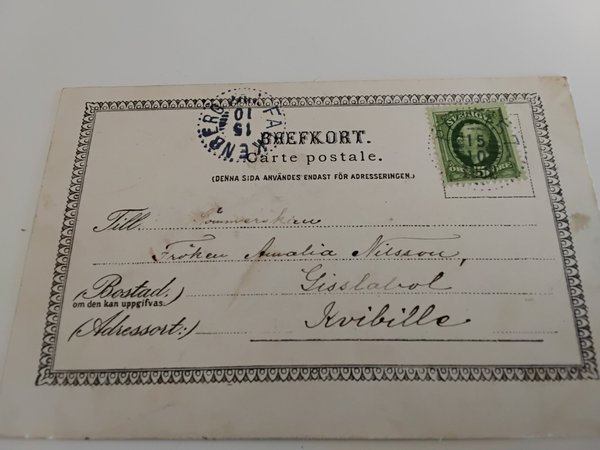 FALKENBERG
15
10
BREFKORT.
Carte postale.
(DENNA SIDA ANVÄNDES ENDAST FÖR ADRESSERINGEN.)
SVERIGE
ÖRE 5 ÖRE
Till Sömmerskan
Fröken Amalia Nilsson,
(Bostad:) Gisslabol
om den kan uppgifvas.
(Adressort:) Kvibille